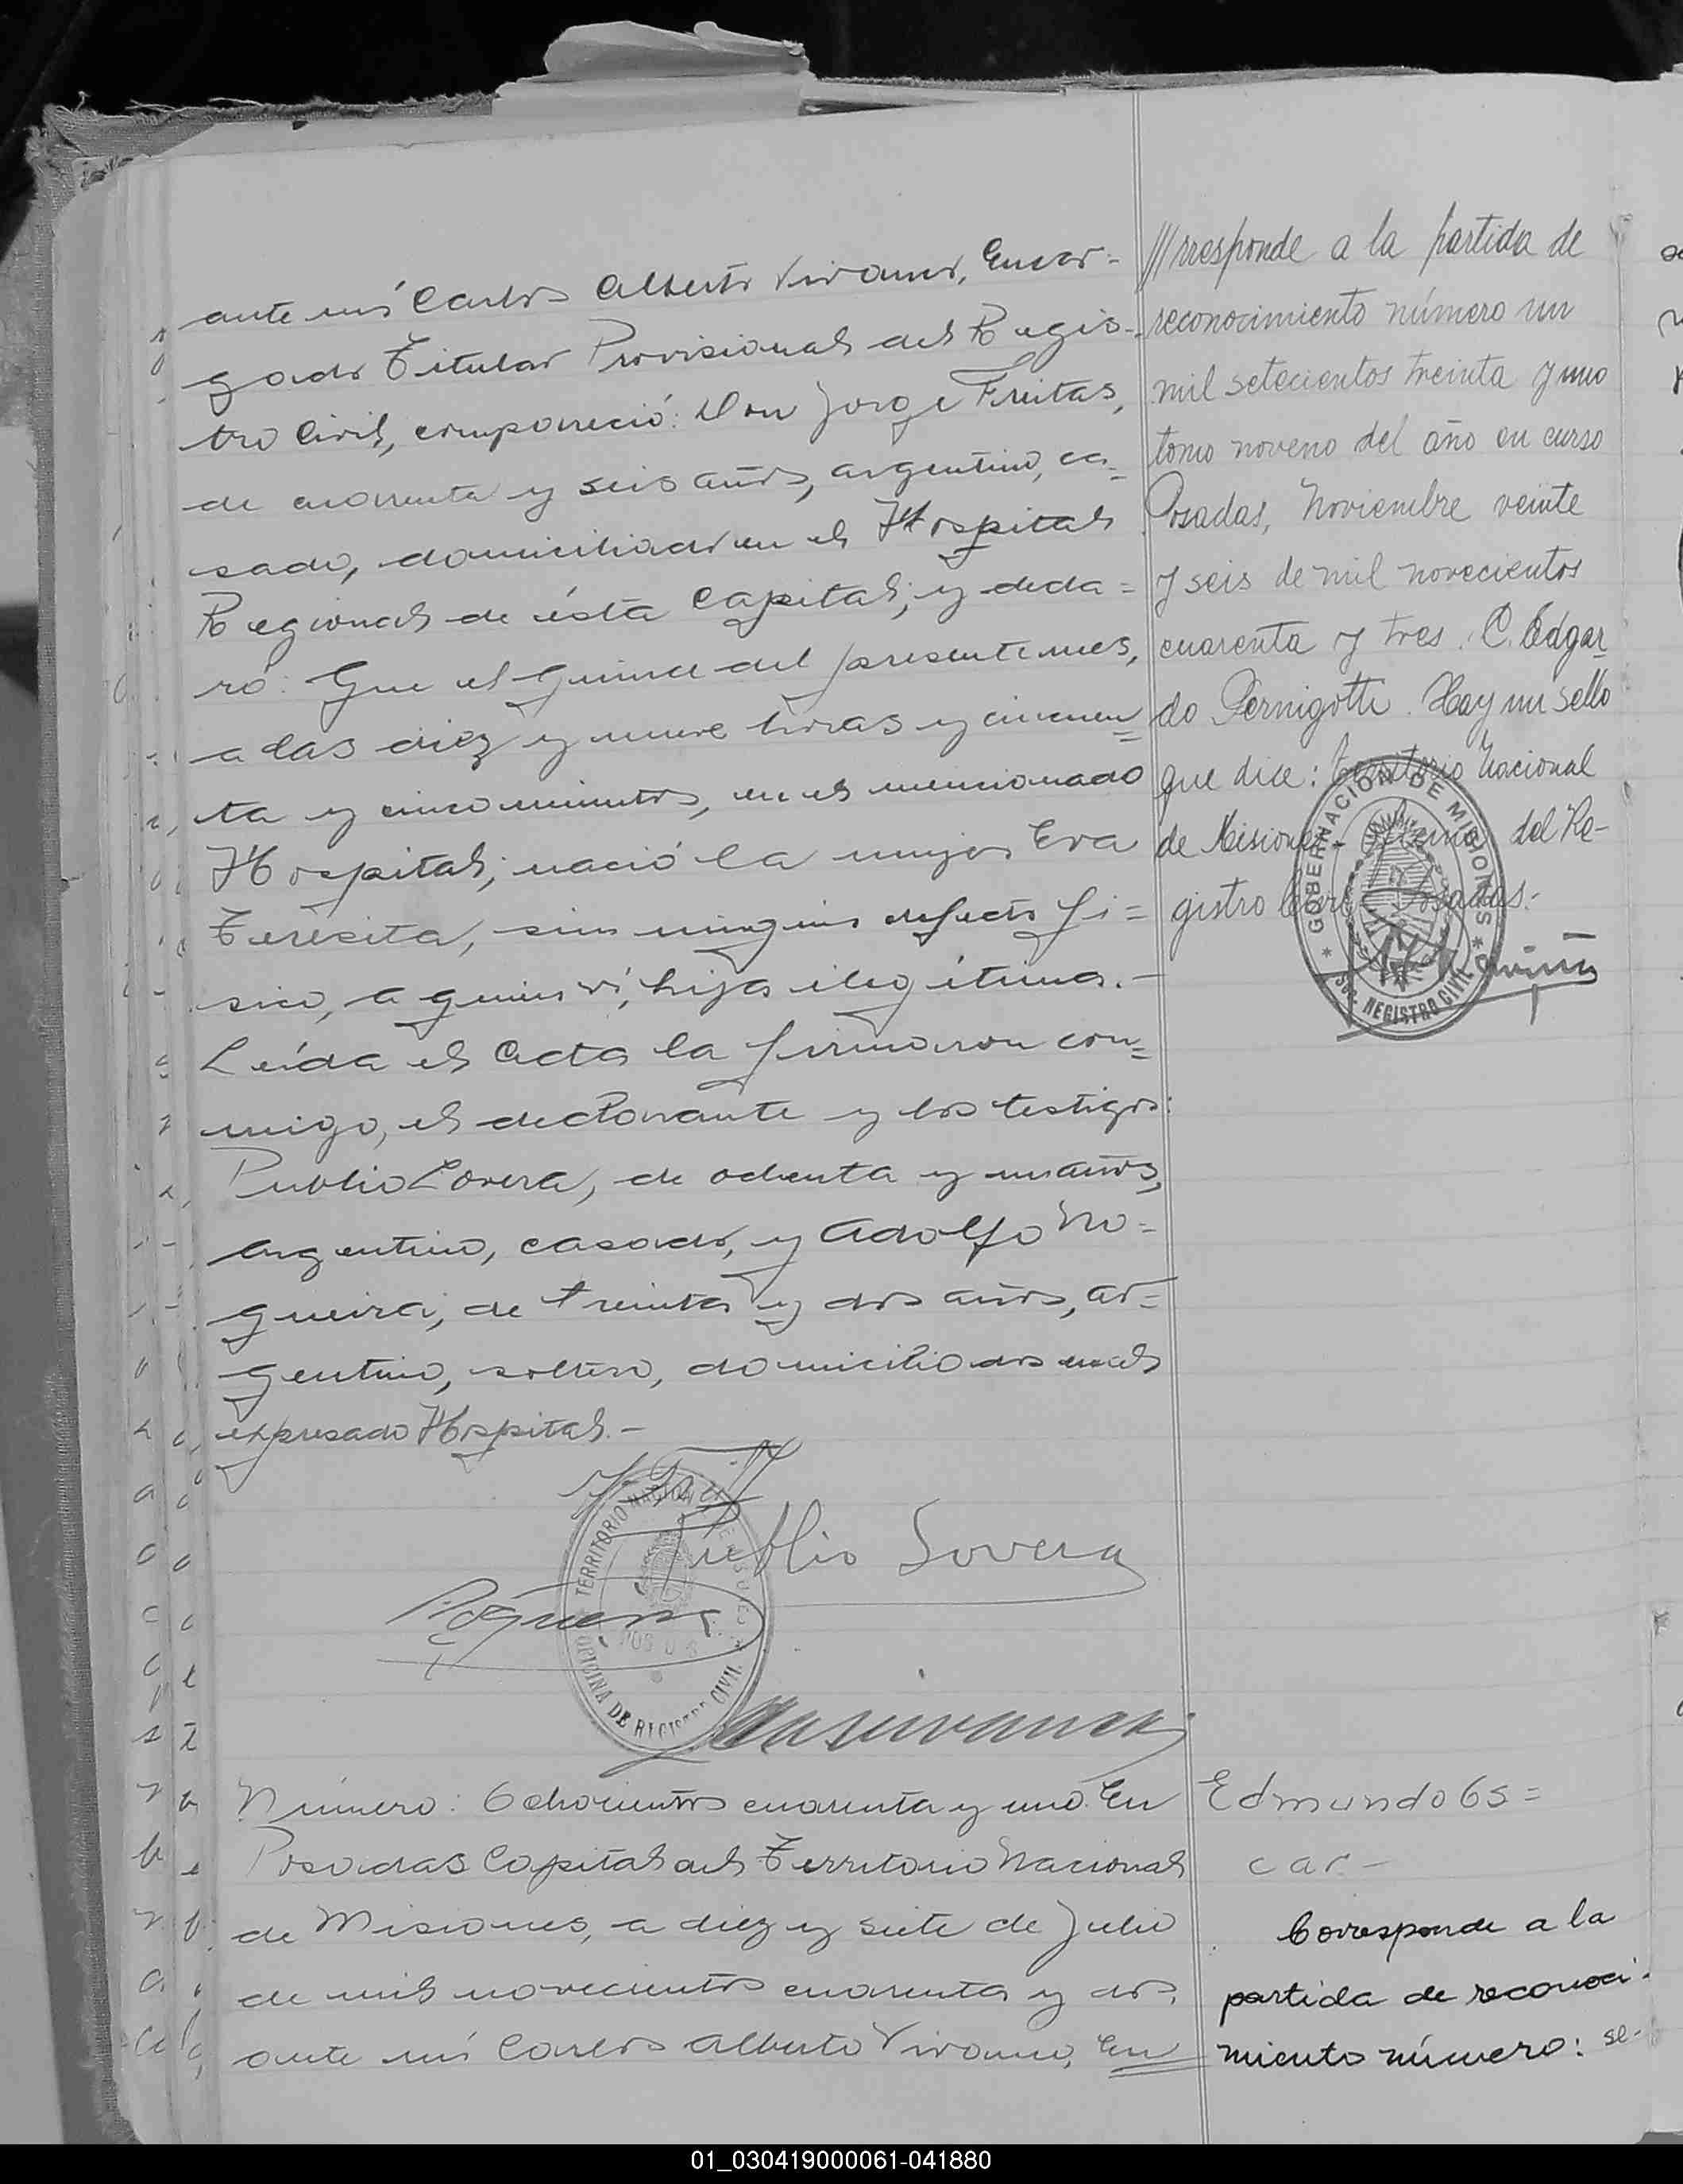 ante mí Carlos Alberto Vivanco, Encar=
gado Titular Provisional del Regis-
tro Civil, compareció: Don Jorge Freitas,
de cuarenta y seis años, argentino, ca=
sado, domiciliado en el Hospital
Regional de ésta Capital; y decla=
ró: Que el quince del presente mes,
a las diez y nueve horas y cincuen=
ta y cinco minutos, en el mencionado
Hospital; nació la mujer Eva
Teresita, sin ningún defecto fí=
sico, a quien ví, hija ilegítima.-
Leída el Acta la firmaron con=
migo, el declarante y los testigos:
Publio Lovera, de ochenta y un años,
argentino, casado, y Adolfo No=
gueira; de treinta y dos años, ar=
gentino, soltero, domiciliados en el
expresado Hospital.-
Publio Lovera
TERRITORIO NACIONAL DE MISIONES
OFICINA DE REGISTRO CIVIL
Número: Ochocientos cuarenta y uno. En
Posadas Capital del Territorio Nacional
de Misiones, a diez y siete de Julio
de mil novecientos cuarenta y dos,
ante mí Carlos Alberto Vivanco, En
///rresponde a la partida de
reconocimiento número un
mil setecientos treinta y uno
tomo noveno del año en curso
Posadas, Noviembre veinte
y seis de mil novecientos
cuarenta y tres. C. Edgar
do Pernigotti. Hay un sello
que dice: Territorio Nacional
de Misiones - Oficina del Re-
gistro Civil Posadas.-
GOBERNACION DE MISIONES
REGISTRO CIVIL
Edmundo Os=
car-
Corresponde a la
partida de reconoci-
miento número: se-
01_030419000061-041880